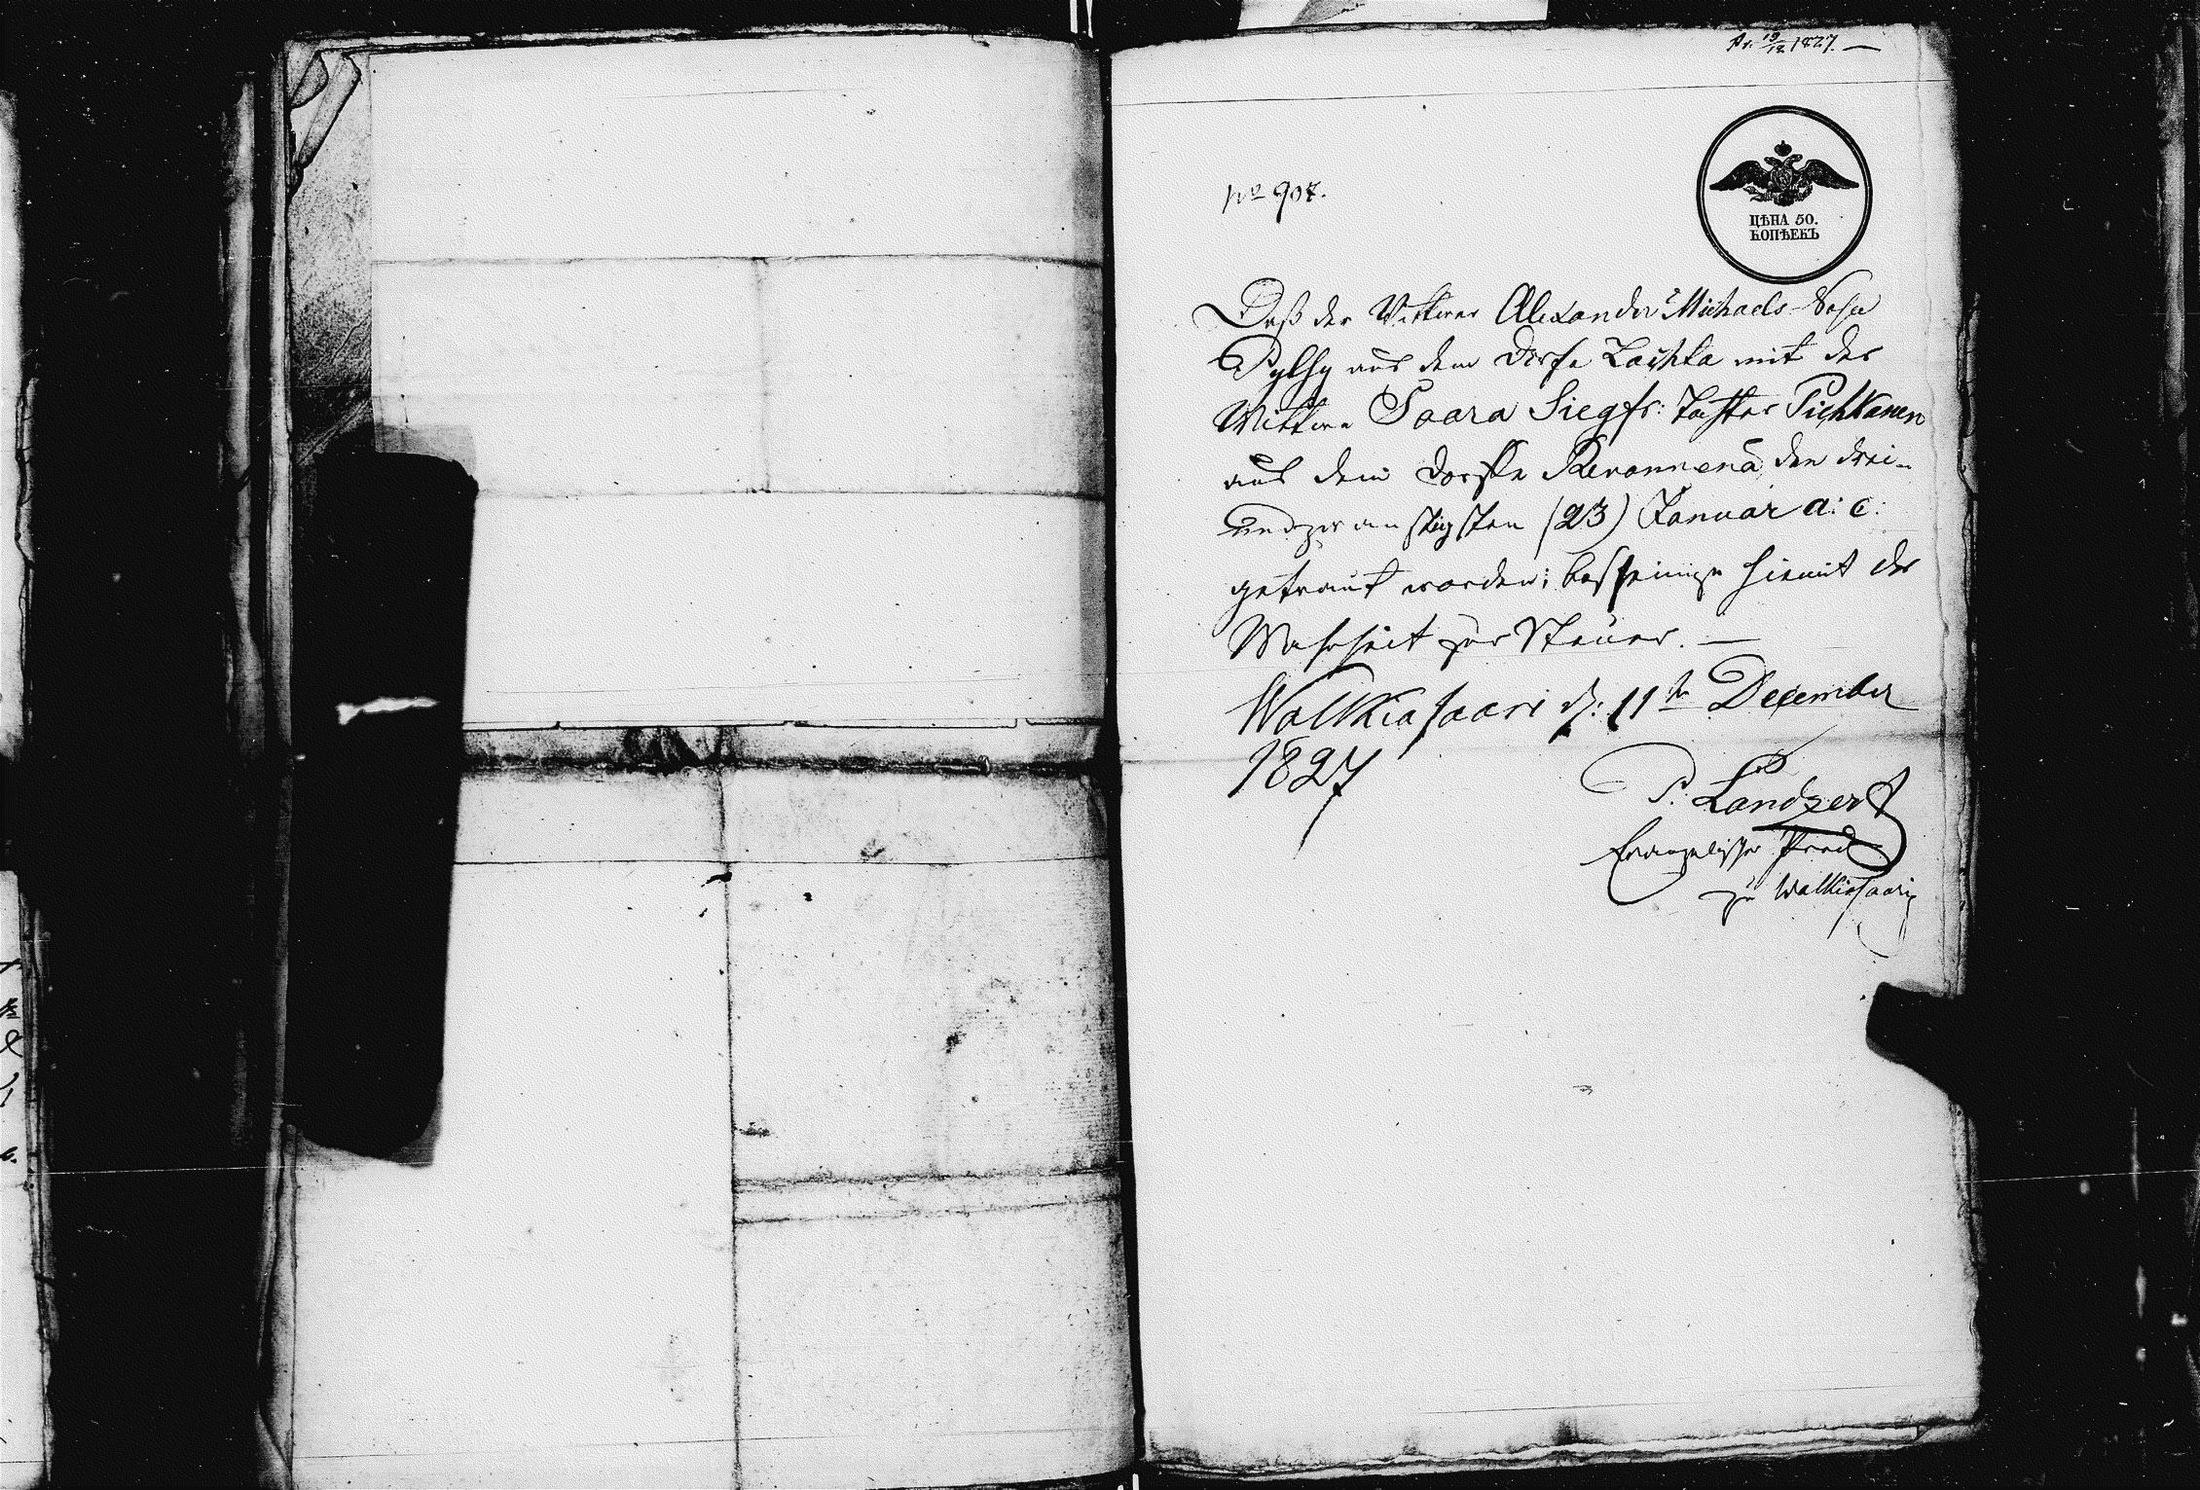 Pr. 19/12. 1827. —
No 907.
ЦѢНА 50.
КОПѢЕКЪ
Daß der Wittwer Alexander Michaels-Sohn
Pylsy aus dem Dorfe Lachta mit der
Wittwe Saara Siegfr: Tochter Pichkanen
aus dem Dorffe Rewonnenä den drei-
undzwanzigsten (23) Januar a: c:
getraut worden; bescheinige hiemit der
Wahrheit zur Steuer. —
Walkiasaari d: 11ten December
1827
P. Landzert
Evangelischer Pred
zu Walkiasaari